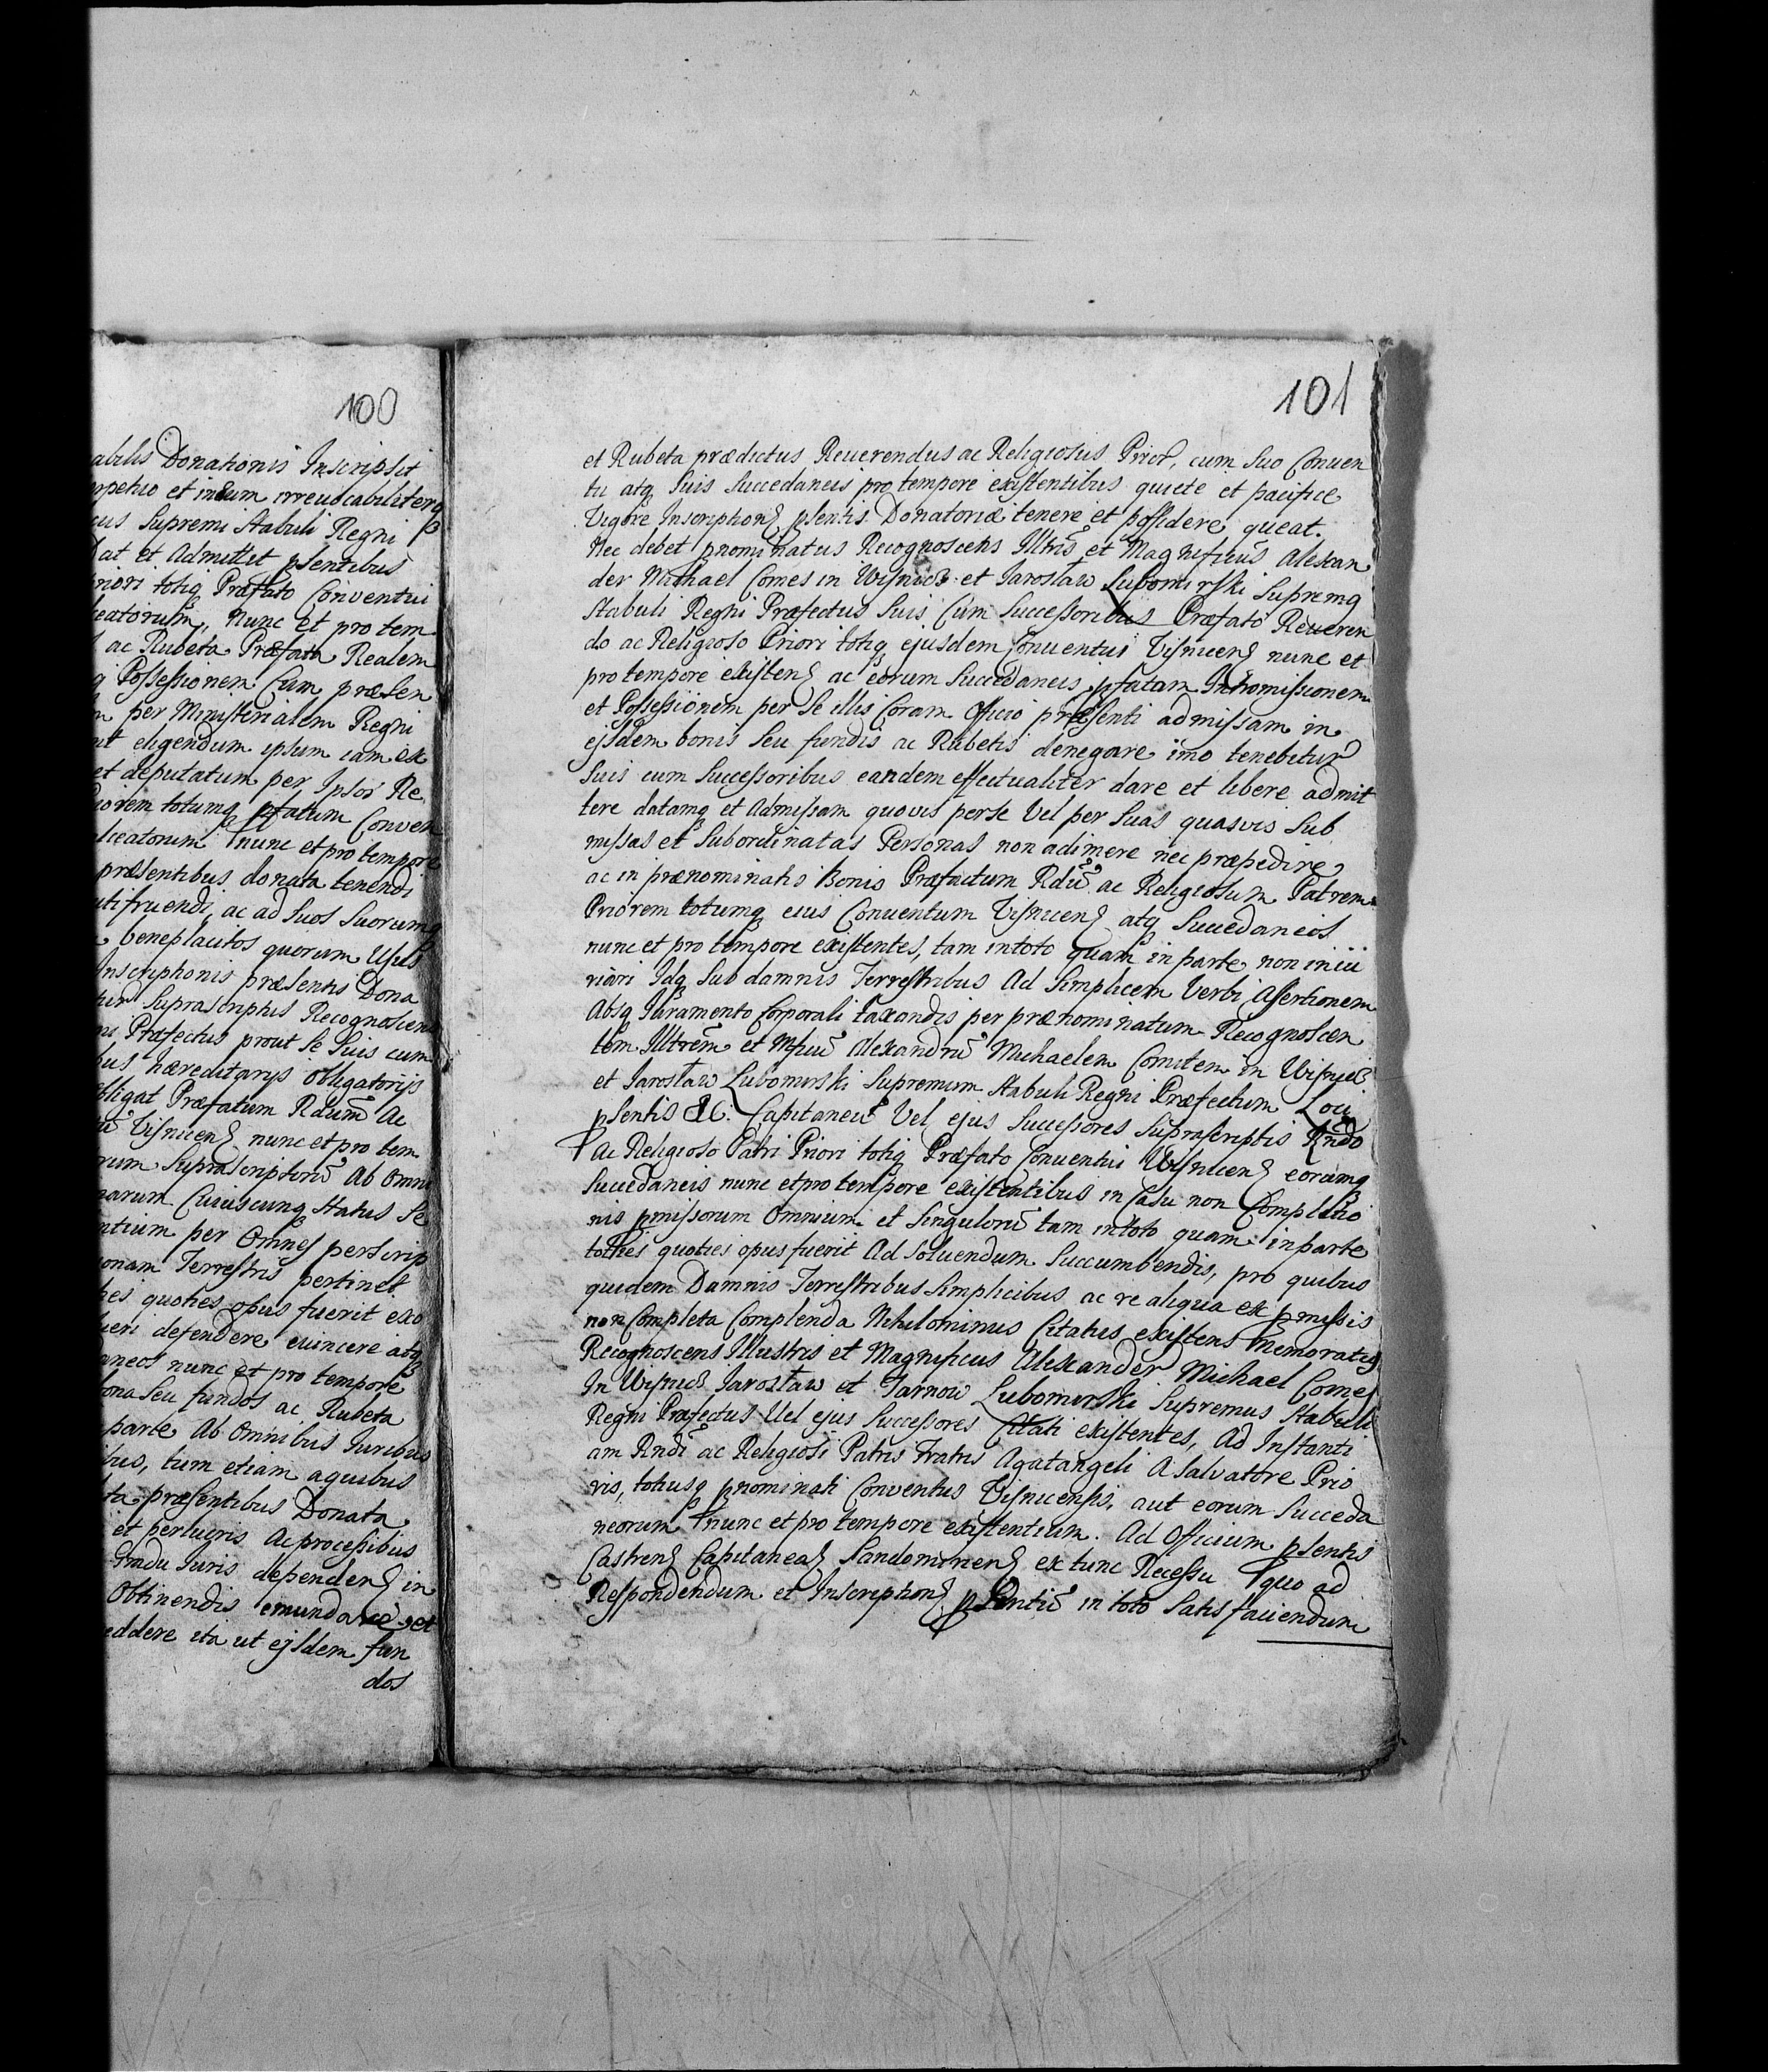 100
abilis Donationis Inscripsit
rpetuo et in aevum irrevocabiliterq
cus Supremi Stabuli Regni
Dat et Admittit pſentibus
riori totiq Præfato Conventui
leatorum, nunc et pro tem
ac Rubeta Præfata Realem
q Poſſeſſionem Cum præſen
per Ministerialem Regni
eligendum ipsum iam ex
et deputatum per Ipsos Re
iorem totumq pfatum Conven
lceatorum nunc et pro tempore
præsentibus donata tenendi
utifruendi, ac ad Suos Suorumq
beneplacitos quorum Usus
Inscriptionis præsentis Dona
tur Suprascriptus Recognoscens
ni Præfectus prout Se Suis cum
bus hæreditarijs obligatorijs
bligat Præfatum Rdum Ac
Viſnicenſ nunc et pro tem
rum Suprascriptorũ Ab Omni
narum Cuiuscunq Status Se
ntium per Omnes perscrip
onam Terrestris pertinet
ies quoties opus fuerit exo
ueri defendere evincere atq
aneos nunc et pro tempore
bona Seu fundos ac Rubeta
parte Ab Omnibus Iuribus
bus, tum etiam aquibus
ta præsentibus Donata
et perlucris Ac proceſſibus
Gradu Iuris dependenſ in
Obtinendis emundare et
eddere ita ut ejsdem fun
dos
101
et Rubeta prædictus Reuerendus ac Religiosus Prior, cum Suo Conuen
tu atq Suis Succedaneis pro tempore existentibus quiete et pacifice
Vigore Inscriptionſ pſentis Donatoriæ tenere et poſſidere queat.
Nec debet pnominatus Recognoscens Illtris et Magnificus Alexan
der Michael Comes in Wiſnicz et Jarosław Lubomirski Supremq
Stabuli Regni Præfectus Suis Cum Succeſſoribus Præfato Reueren
do ac Religioso Priori totiq ejusdem Conuentui Viſnicenſ nunc et
pro tempore existenſ ac eorum Succedaneis pfatam Intromiſſionem
et Poſſeſſionem per Se illis Coram Officio præſenti admiſſam in
ejsdem bonis Seu fundis ac Rubetis denegare imo tenebitur
Suis cum Succeſſoribus eandem effectualiter dare et libere admit
tere datamq et Admiſſam quovis perse Vel per Suas quasvis Sub
miſſas et Subordinatas Personas non adimere nec præpedire
ac in prænominatis Bonis Præfactum Rdũ ac Religiosum Patrem
Priorem totumq eius Conuentum Viſnicenſ atq Succedaneos
nunc et pro tempore existentes, tam in toto quam in parte non iniu
riari Idq Sub damnis Terrestribus Ad Simplicem Verbi Aſſertionem
Absq Iuramento Corporali taxandis per prænominatum Recognoscen
tem Illtrem et Mficũ Alexandrũ Michaelem Comitem in Wiſnicz
et Jarosław Lubomirski Supremum Stabuli Regni Præfectum Loci
pſentis &c. Capitaneũ Vel ejus Succeſſores Suprascriptis Rndo
Ac Religioso Patri Priori totiq Præfato Conventui Wiſnicenſ eorumq
Succedaneis nunc et pro tempore existentibus in Casu non Completio
nis pmiſſorum Omnium et Singulorũ tam in toto quam in parte
toties quoties opus fuerit Ad Soluendum Succumbendis, pro quibus
quidem Damnis Terrestribus Simplicibus ac re aliqua ex pmiſſis
non Completa Complenda Nihilominus Citatus existens Memoratus
Recognoscens Illustris et Magnificus Alexander Michael Comes
In Wiſnicz Jarosław et Tarnow Lubomirski Supremus Stabuli
Regni Præfectus Uel ejus Succeſſores Citati existentes, Ad Instanti
am Rndi ac Religiosi Patris Fratris Agatangeli A Salvatore Prio
ris, totiusq pnominati Conventus Viſnicensis, aut eorum Succeda
neorum nunc et pro tempore existentium. Ad Officium pſentis
Castrenſ Capitanealſ Sandomirienſ ex tunc Receſſu quo ad
Reſpondendum et Inscriptionſ pſentiũ in toto Satisfaciendum